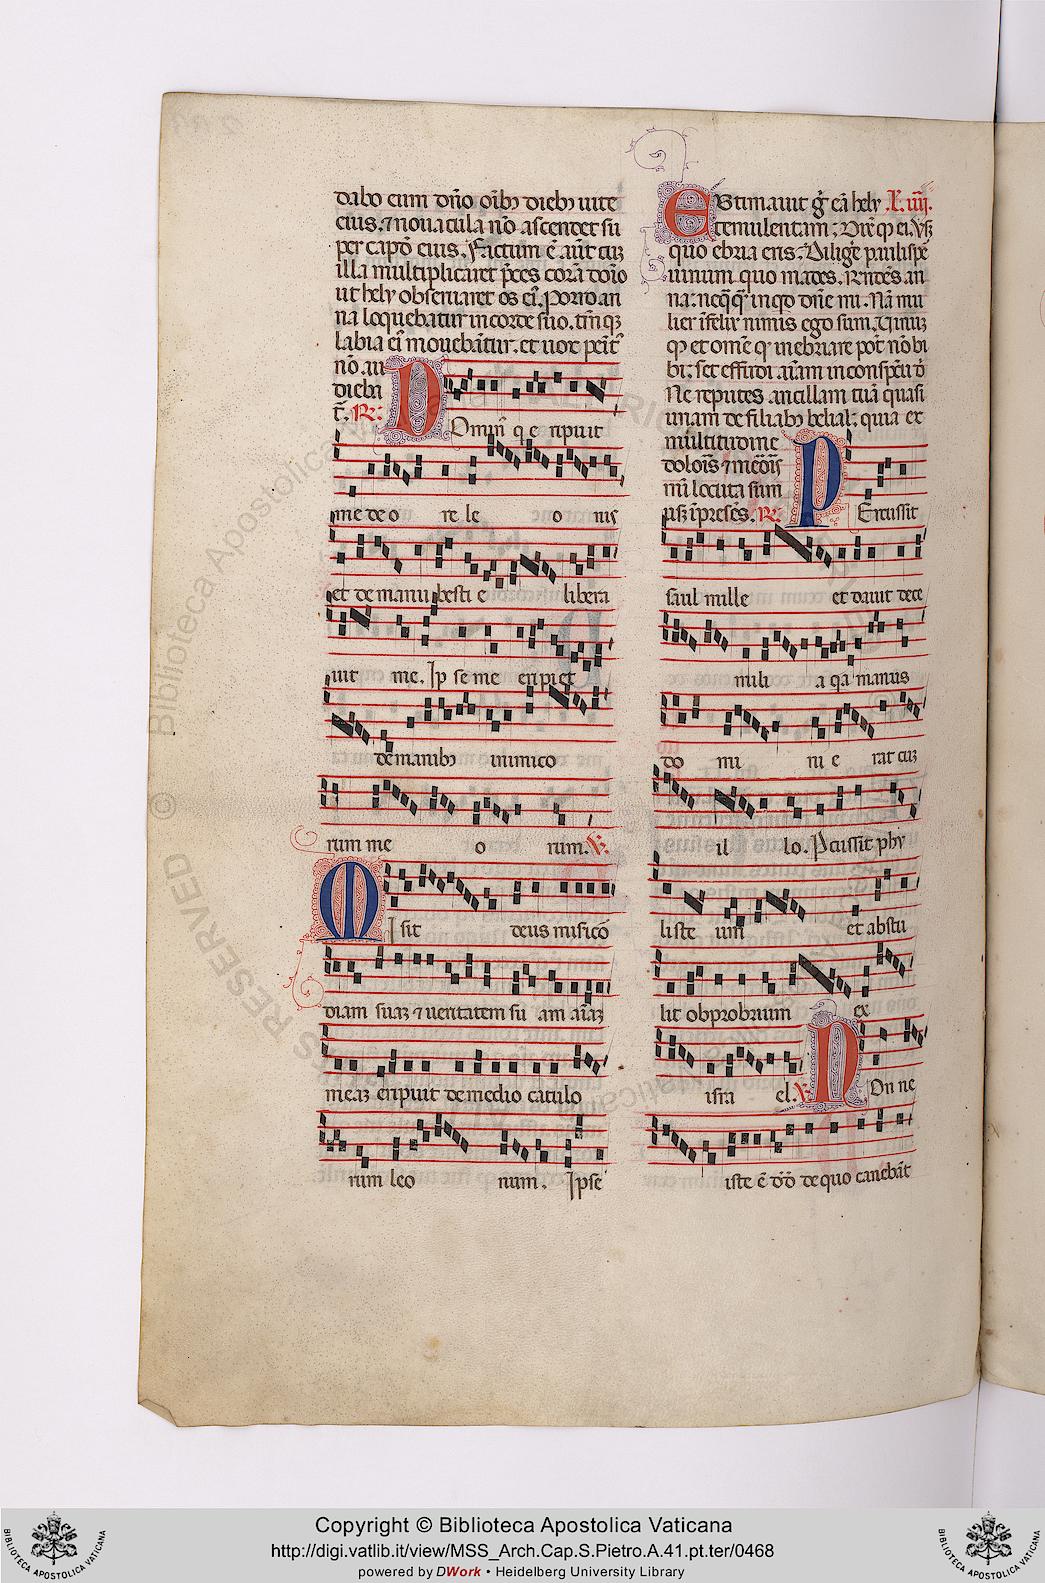 dabo eum dño oibꝫ diebꝫ uite
eius. ⁊ nouacula nõ ascendet su
per capđ eius. Factum ẽ aũt cuꝫ
illa multiplicaret p̃ces corã dño
ut hely obseruaret os ei. Porro an
na loquebatur in corde suo. tm̃qꝫ
labia ei mouebãtur. et uox penit̾
nõ au
dieba
t̃. R̷:
Domin̾ q e ripuit
me de o re le o nis
et de manu besti e libera
uit me. Ip se me eripiet
de manibꝫ inimico
rum me o rum. V̷.
Misit deus misico
diam suaꝫ ⁊ ueritatem su am aiaꝫ
meaꝫ eripuit de medio catulo
rum leo num. Ipse
Estimauit g̾ eã hely L. iiij.
temulentam: Dix̃ qꝫ ei. Vsqꝫ
quo ebria eris: Digere paulispẽ
uinum quo mades. Rñdẽs an
na: neqꝗꝗ inqđ dñe mi. Nã mu
lier ĩfelix nimis ego sum. Uinuꝫ
qꝫ et om̃e qđ inebriare pot̃ nõ bi
bi: set effudi aiam in conspẽu đ
Ne reputes ancillam tuã quasi
unam de filiabꝫ belial: quia ex
multitudine
doloris ⁊ meõris
mi locuta sum
usqꝫ ĩ presẽs. R̷:
Percussit
saul mille et dauit dece
mili a qa manus
do mi ni e rat cuꝫ
il lo. Pcussit phy
liste um et abstu
lit obprobrium ex
isra el. V̷ Non ne
iste ẽ dđ de quo canebãt
Copyright © Biblioteca Apostolica Vaticana
http://digi.vatlib.it/view/MSS_Arch.Cap.S.Pietro.A.41.pt.ter/0468
powered by DWork • Heidelberg University Library
BIBLIOTECA APOSTOLICA VATICANA
BIBLIOTECA APOSTOLICA VATICANA